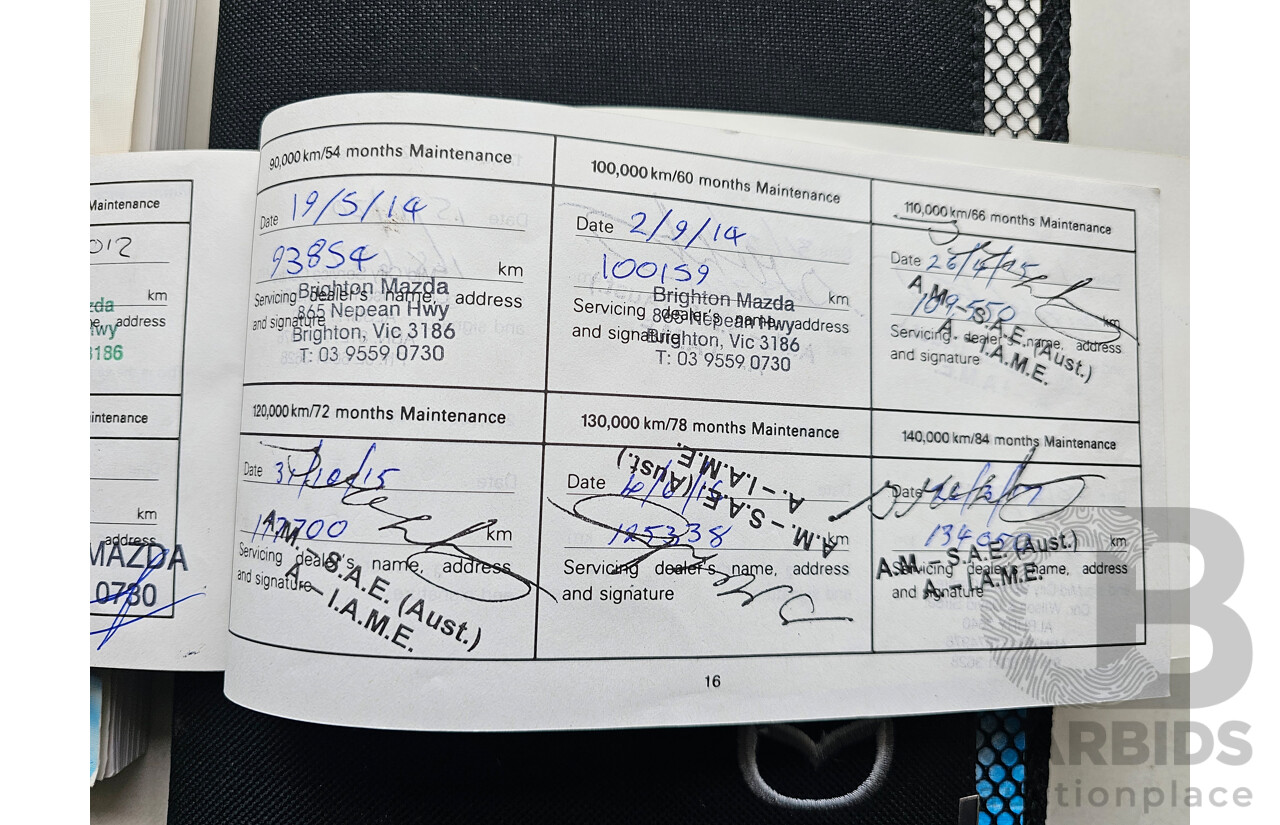 Maintenance
012
km
zda
address
3186
intenance
km
address
MAZDA
0730
90,000 km/54 months Maintenance
Date 19/5/14
93854 km
Servicing dealer's name, address
and signature
Brighton Mazda
865 Nepean Hwy
Brighton, Vic 3186
T: 03 9559 0730
100,000 km/60 months Maintenance
Date 2/9/14
100159 km
Servicing dealer's name, address
and signature
Brighton Mazda
865 Nepean Hwy
Brighton, Vic 3186
T: 03 9559 0730
110,000 km/66 months Maintenance
Date
109550 km
Servicing dealer's name, address
and signature
A.M. – S.A.E. (Aust.)
A. – I.A.M.E.
120,000 km/72 months Maintenance
Date 31/10/15
km
Servicing dealer's name, address
and signature
A.M. – S.A.E. (Aust.)
A. – I.A.M.E.
130,000 km/78 months Maintenance
Date
125338 km
Servicing dealer's name, address
and signature
A.M. – S.A.E. (Aust.)
A. – I.A.M.E.
140,000 km/84 months Maintenance
Date
km
Servicing dealer's name, address
and signature
A.M. – S.A.E. (Aust.)
A. – I.A.M.E.
16
ARBIDS
tionplace